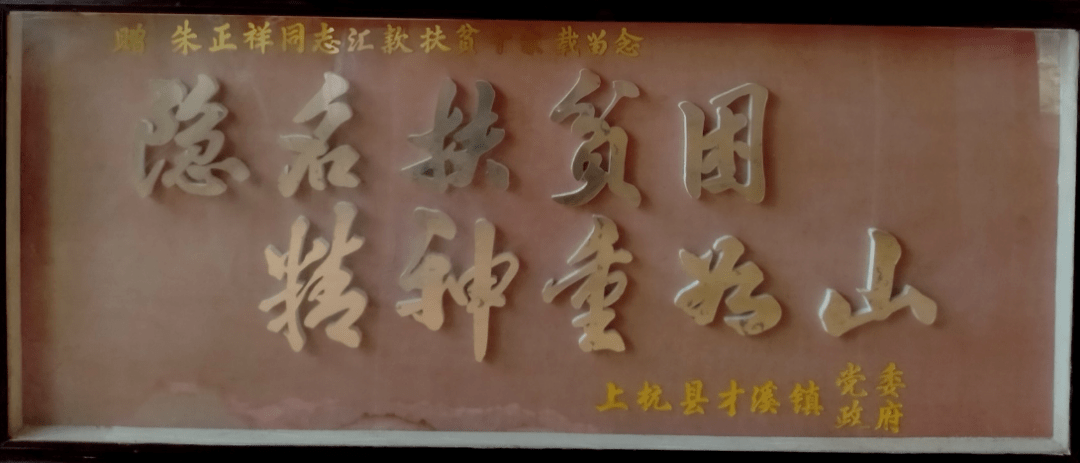 赠 朱正祥同志汇款扶贫十余载留念
隐名扶贫困
精神重如山
上杭县才溪镇 党委
政府